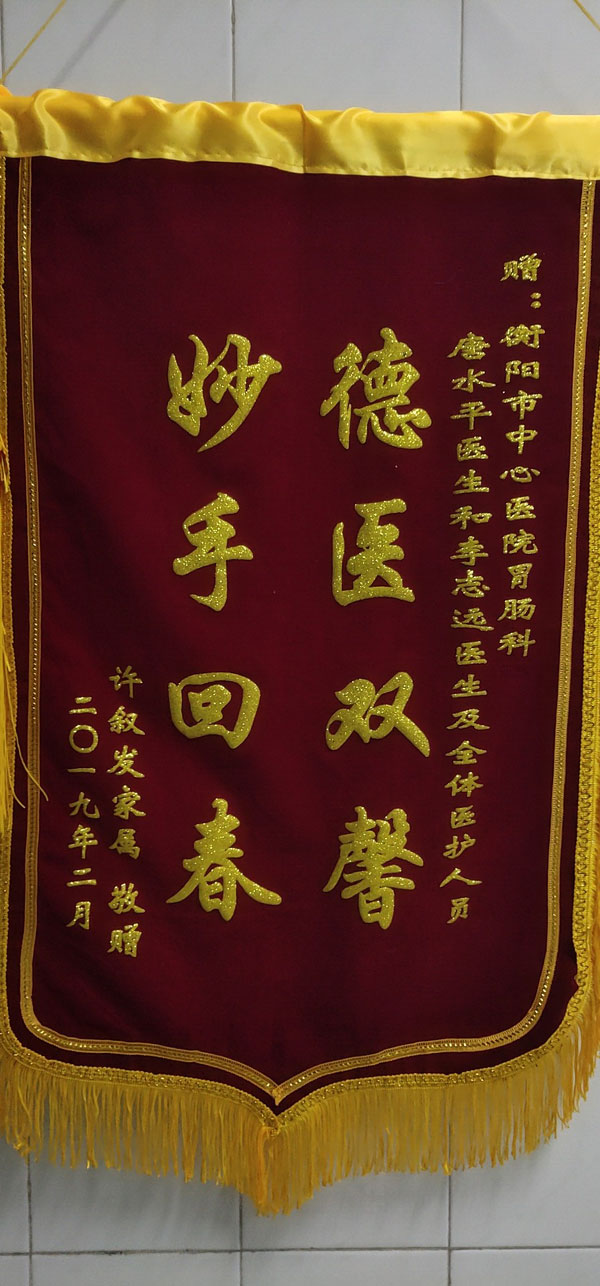 赠：衡阳市中心医院胃肠科
唐水平医生和李志远医生及全体医护人员
德医双馨
妙手回春
许叙发家属 敬赠
二〇一九年二月